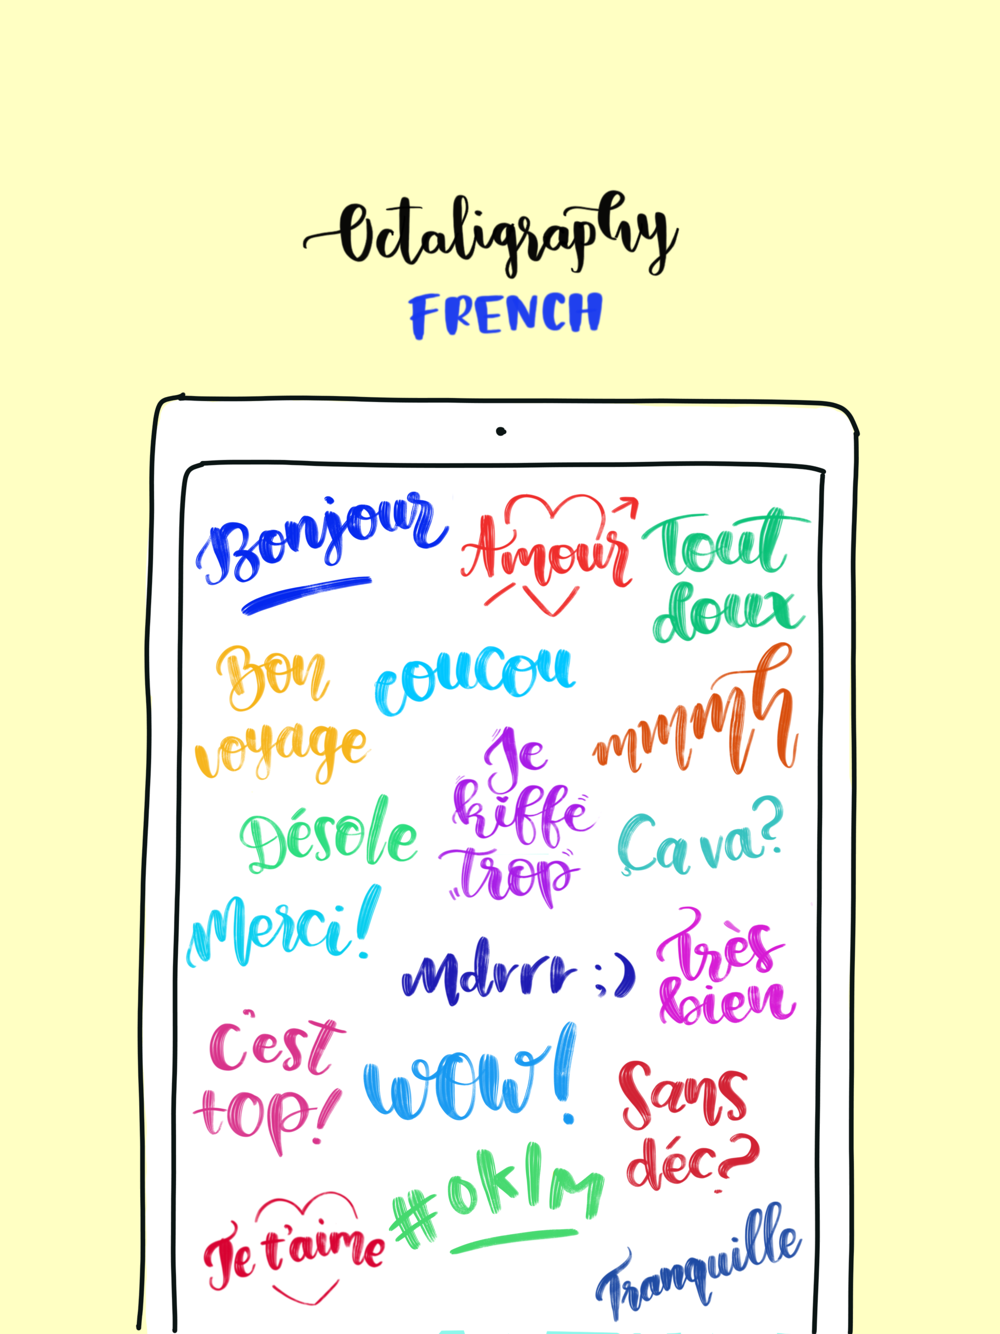 Octaligraphy
FRENCH
Bonjour
Amour
Tout
doux
Bon
voyage
coucou
mmmh
Je
kiffe
trop
Désole
Ça va?
Merci!
Mdrrr ;)
Très
bien
C'est
top!
wow!
Sans
déc?
#oklm
Je t'aime
Tranquille